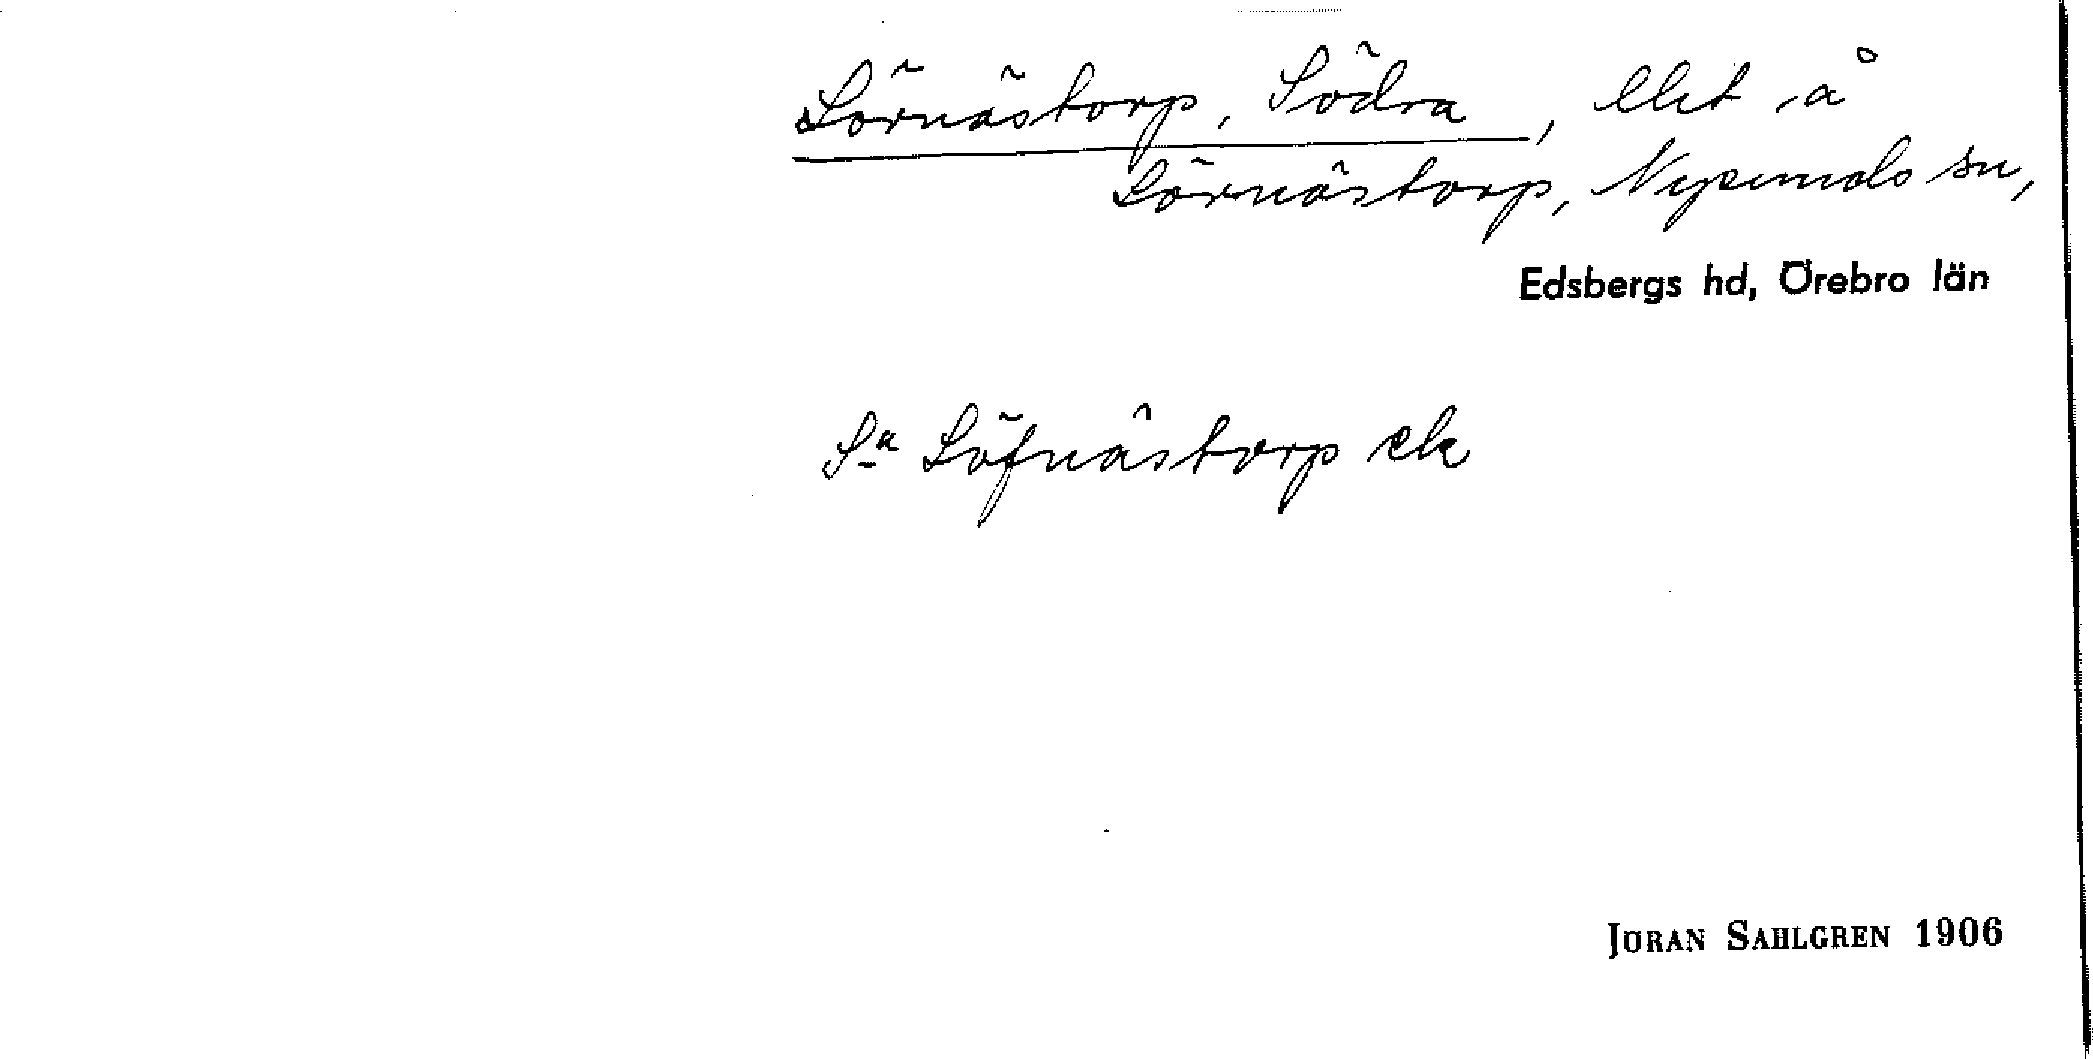 Lörnästorp, Södra, lht å
Lörnästorp, Nysunds sn,
Edsbergs hd, Örebro län
Sa Löfnästorp ek
JÖRAN SAHLGREN 1906